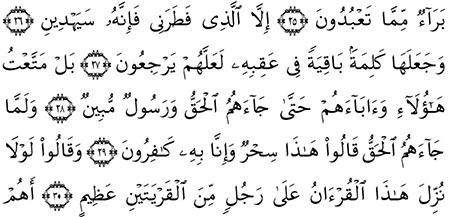 بَرَآءٌ مِّمَّا تَعْبُدُونَ ﴿٢٥﴾ إِلَّا ٱلَّذِى فَطَرَنِى فَإِنَّهُۥ سَيَهْدِينِ ﴿٢٦﴾
وَجَعَلَهَا كَلِمَةًۢ بَاقِيَةً فِى عَقِبِهِۦ لَعَلَّهُمْ يَرْجِعُونَ ﴿٢٧﴾ بَلْ مَتَّعْتُ
هَـٰٓؤُلَآءِ وَءَابَآءَهُمْ حَتَّىٰ جَآءَهُمُ ٱلْحَقُّ وَرَسُولٌ مُّبِينٌ ﴿٢٨﴾ وَلَمَّا
جَآءَهُمُ ٱلْحَقُّ قَالُوا۟ هَـٰذَا سِحْرٌ وَإِنَّا بِهِۦ كَـٰفِرُونَ ﴿٢٩﴾ وَقَالُوا۟ لَوْلَا
نُزِّلَ هَـٰذَا ٱلْقُرْءَانُ عَلَىٰ رَجُلٍ مِّنَ ٱلْقَرْيَتَيْنِ عَظِيمٍ ﴿٣٠﴾ أَهُمْ